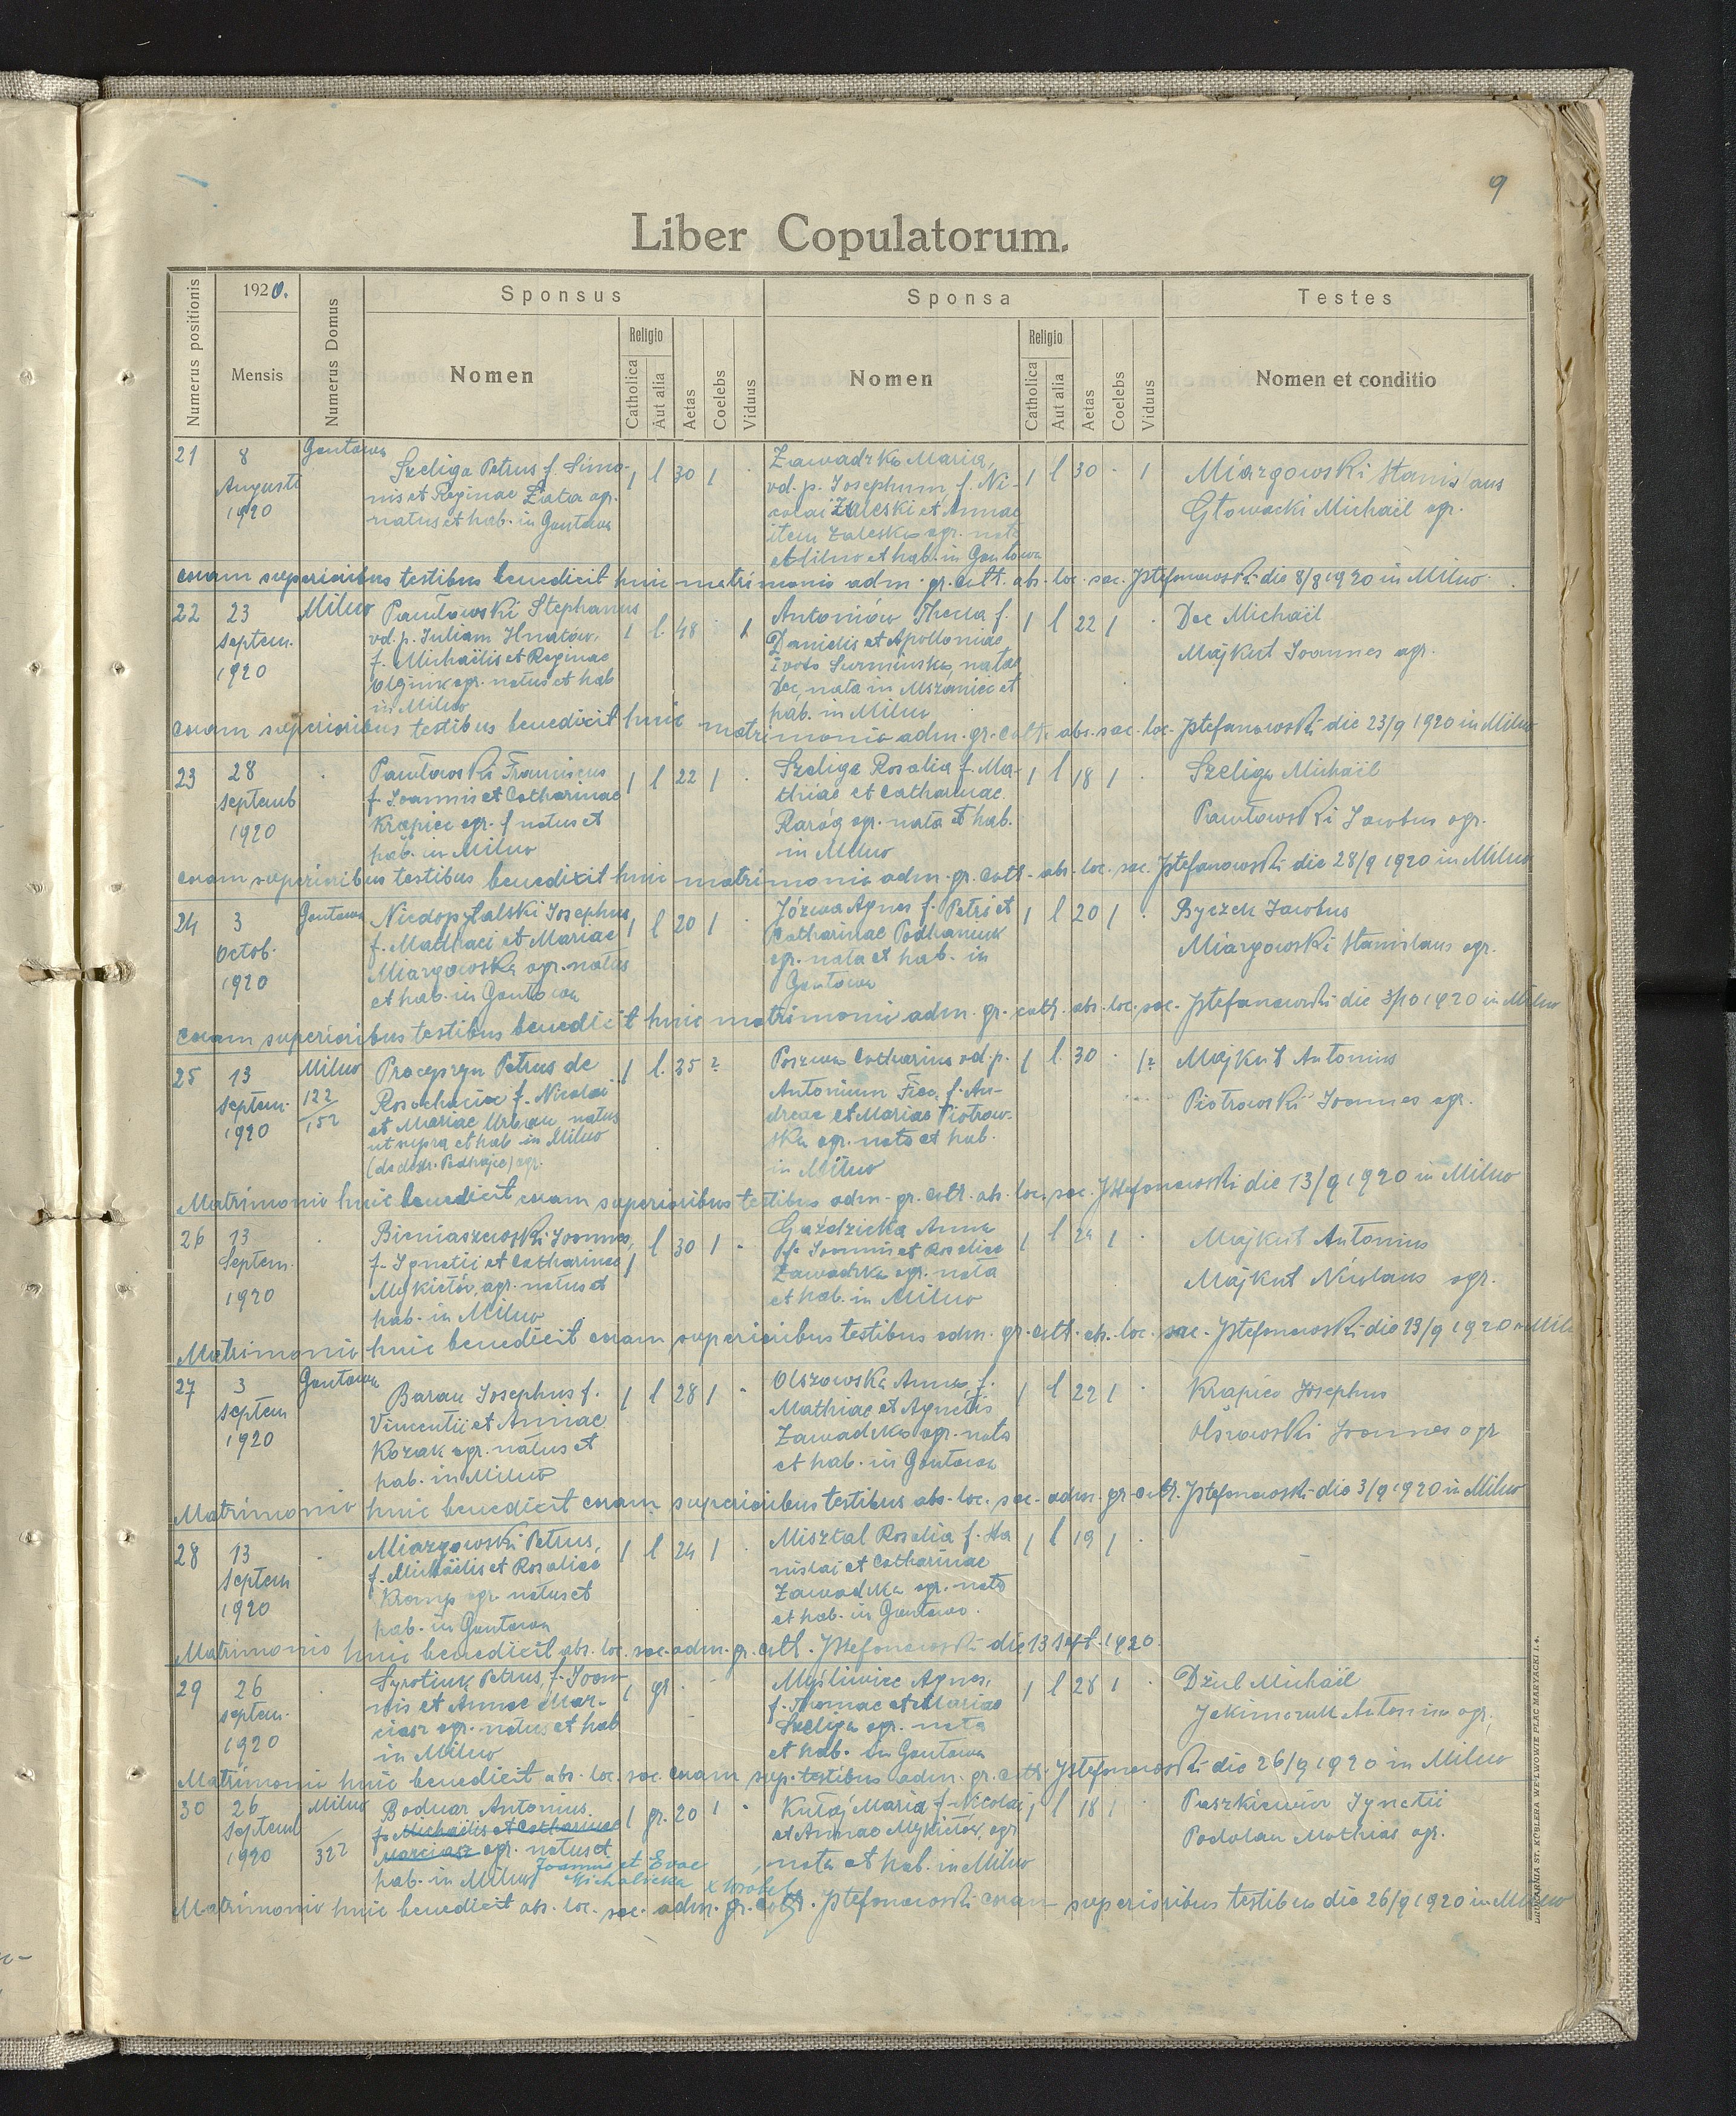 9
Liber Copulatorum.
Numerus positionis
1920.
Mensis
Numerus Domus
Sponsus
Nomen
Religio
Catholica
Aut alia
Aetas
Coelebs
Viduus
Sponsa
Nomen
Religio
Catholica
Aut alia
Aetas
Coelebs
Viduus
Testes
Nomen et conditio
21
8
Augusti
1920
Gontowa
Szeliga Petrus f. Simo-
nis et Reginae Łata agr.
natus et hab. in Gontowa
1 l 30 1
Zawadzka Maria,
vd. p. Josephum f. Ni-
colai Zaleski et Annae
item Zaleska agr. nata
et hab. in Gontowa
1 l 30 · 1
Miazgowski Stanislaus
Głowacki Michaël agr.
coram superioribus testibus benedixit huic matrimonio adm. gr. cath. abs. loc. sac. J Stefanowski die 8/8 1920 in Milno.
22
23
Septem.
1920
Milno
Pawłowski Stephanus
vd. p. Juliam Hnatów,
f. Michaëlis et Reginae
Olejnik agr. natus et hab
in Milno
1 l. 48 · 1
Antoniów Thecla f.
Danielis et Apolloniae
Surmińska, nata
Dec, nata in Mszaniec et
hab. in Milno
1 l 22 1 ·
Dec Michaël
Majkut Joannes agr.
coram superioribus testibus benedixit huic matrimonio adm. gr. cath. abs. sac. loc. J Stefanowski die 23/9 1920 in Milno
23
28
Septemb
1920
Pawłowski Franciscus
f. Joannis et Catharinae
Krąpiec agr. natus et
hab. in Milno
1 l 22 1 ·
Szeliga Rosalia f. Ma-
thiae et Catharinae
Raróg agr. nata et hab.
in Milno
1 l 18 1 ·
Szeliga Michaël
Pawłowski Jacobus agr.
coram superioribus testibus benedixit huic matrimonio adm. gr. cath. abs. loc. sac. J Stefanowski die 28/9 1920 in Milno
24
3
Octob.
1920
Gontowa
Niedopytalski Josephus
f. Mathaei et Mariae
Miazgowska agr. natus
et hab. in Gontowa
1 l 20 1 ·
Józwa Agnes f. Petri et
Catharinae Podhaniuk
agr. nata et hab. in
Gontowa
1 l 20 1 ·
Byczek Jacobus
Miazgowski Stanislaus agr.
coram superioribus testibus benedicit huic matrimonio adm. gr. cath. abs. loc. sac. J Stefanowski die 3/10 1920 in Milno
25
13
Septem.
1920
Milno
122
/152
Procyszyn Petrus de
Rosochaciec f. Nicolai
et Mariae Urban natus
ut supra et hab in Milno
(de distr. Podhajce) agr.
1 l. 35 2
Catharina vd. p.
Antonium Fiec, f. An-
dreae et Mariae Piotrow-
ska agr. nata et hab.
in Milno
1 l. 30 · 12
Majkut Antonius
Piotrowski Joannes agr.
Matrimonio huic benedicit coram superioribus testibus adm. gr. cath. abs. loc. sac. J Stefanowski die 13/9 1920 in Milno
26
13
Septem.
1920
Bieniaszewski Joannes,
f. Ignatii et Catharinae
Mykietów, agr. natus et
hab. in Milno
1 l 30 1 ·
Gaździcka Anna
f. Joannis et Rosaliae
Zawadzka agr. nata
et hab. in Milno
1 l 24 1 ·
Majkut Antonius
Majkut Nicolaus agr.
Matrimonio huic benedicit coram superioribus testibus adm. gr. cath. abs. loc. sac. J Stefanowski die 13/9 1920 in Miln
27
3
Septem
1920
Gontowa
Baran Josephus f.
Vincentii et Annae
Kozak agr. natus et
hab. in Milno
1 l 28 1 ·
Olszowska Anna, f.
Mathiae et Agnetis
Zawadzka agr. nata
et hab. in Gontowa
1 l 22 1 ·
Krąpiec Josephus
Olszowski Joannes agr
Matrimonio huic benedicit coram superioribus testibus abs. loc. sac. adm. gr. cath. J Stefanowski die 3/9 1920 in Milno
28
13
Septem
1920
Miazgowski Petrus,
f. Michaëlis et Rosaliae
Kromp agr. natus et
hab. in Gontowa
1 l 24 1 ·
Misztal Rosalia f. Sta
nislai et Catharinae
Zawadzka agr. nata
et hab. in Gontowa.
1 l 19 1
Matrimonio huic benedicit abs. loc. sac. adm. gr. cath. J Stefanowski die 13 Sept. 1920.
29
26
Septem.
1920
Syrotiuk Petrus, f. Joan
nis et Annae Mar-
ciasz agr. natus et hab
in Milno
1 gr
Myśliwiec Agnes,
f. Thomae et Mariae
Szeliga agr. nata
et hab. in Gontowa
1 l 28 1 ·
Dziul Michaël
Jakimczuk Antonius agr.,
Matrimonio huic benedicit abs. loc. sac. coram sup. testibus adm. gr. cath. J Stefanowski die 26/9 1920 in Milno
30
26
Septemb
1920
Milno
322
Bodnar Antonius
f. Michaëlis et Catharinae
Marciasz agr. natus et
hab. in Milno Joannis et Evae
Michalicka x Wróbel
1 gr. 20 1 ·
Kutaj Maria f. Nicolai
et Annae Mykietów, agr
nata et hab. in Milno
1 l 18 1
Paszkiewicz Ignatii
Podolan Mathias agr.
Matrimonio huic benedicit abs. loc. sac. adm. gr. cath. J Stefanowski coram superioribus testibus die 26/9 1920 in Milno
DRUKARNIA ST. KÖHLERA WE LWOWIE PLAC MARYACKI l. 4.